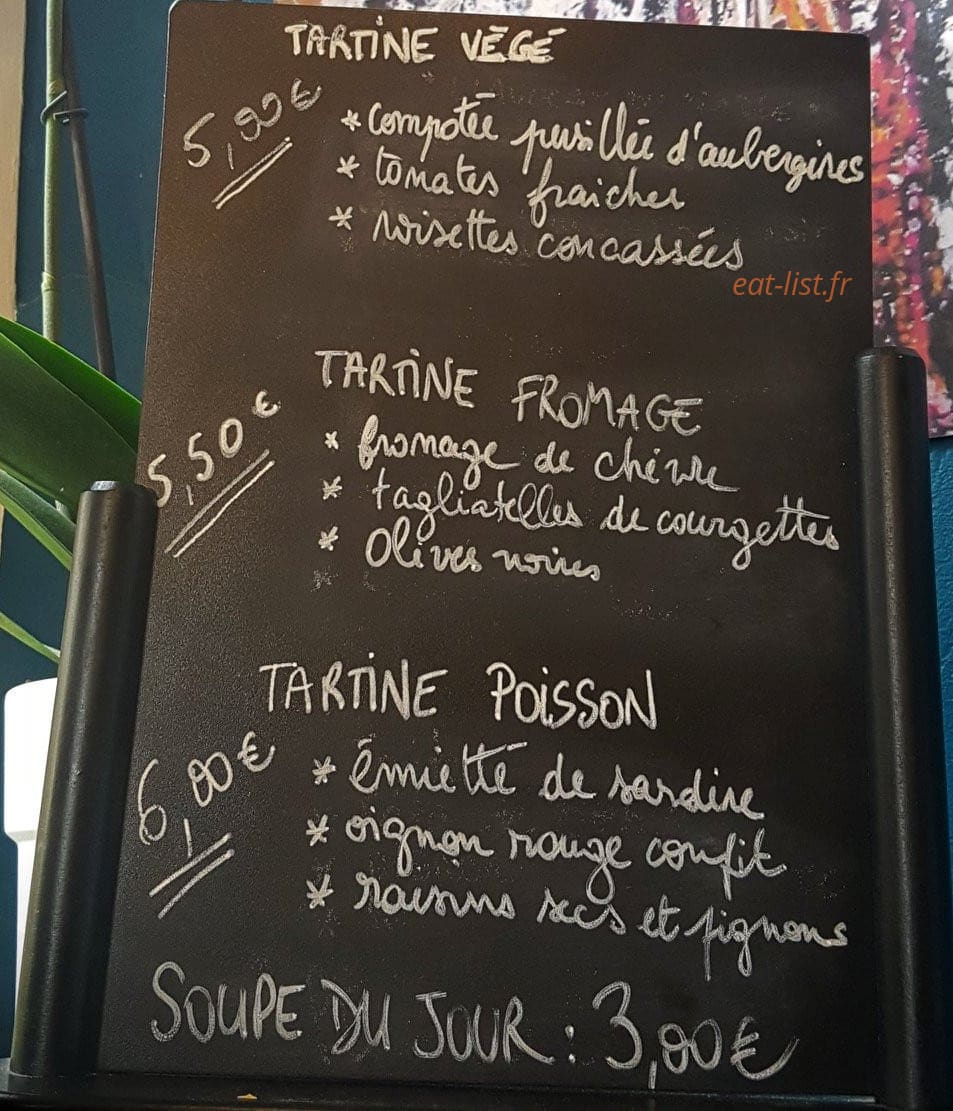 TARTINE VÉGÉ
5,00€
*compotée persillée d'aubergines
* tomates fraiches
* noisettes concassées
eat-list.fr
TARTINE FROMAGE
5,50 €
* fromage de chèvre
* tagliatelles de courgettes
* Olives noires
TARTINE POISSON
6,00€
* émietté de sardine
* oignon rouge confit
* raisins secs et pignons
SOUPE DU JOUR : 3,00€